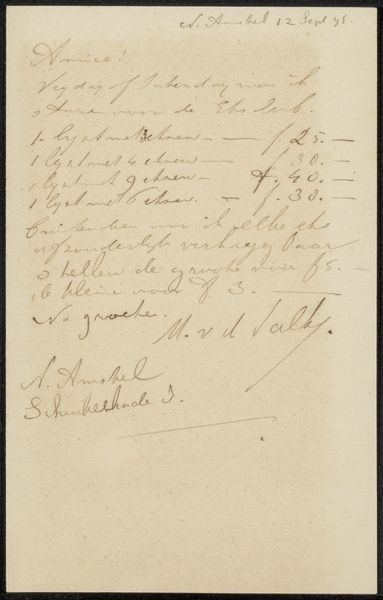 N. Amstel 12 Sept 95.
Amice!
Vrydag of Zaterdag zal ik
sturen voor de Ets Club.
1 lyst met 3 etsen — — f. 25. —
1 lyst met 4 etsen — f. 30. —
1 lyst met 9 etsen — f. 40. —
1 lyst met 6 etsen. — f. 30. —
Buitendien wil ik elke ets
afzonderlyk verkrygbaar
stellen de groote voor f 5. —
de kleine voor f 3. —
Na groete.
M. v d Valk.
N. Amstel
Schinkelkade 3.